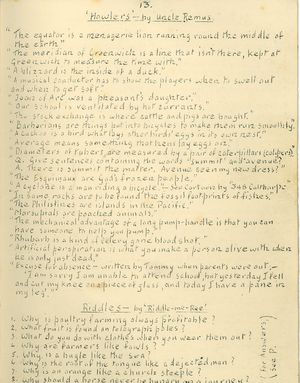 13.
'Howlers' - by Uncle Remus.
"The equator is a menagerie lion running round the middle of
the earth."
"The meridian of Greenwich is a line that isn't there, kept at
Greenwich to measure the time with."
"A blizzard is the inside of a duck."
"A musical conductor has to show the players when to swell out
and when to get soft."
"Joan of Arc was a pheasant's daughter."
"Our school is ventilated by hot currants."
"The stock exchange is where cattle and pigs are bought."
"Barbarians are things put into bicycles to make them run smoothly."
"A cuckoo is a bird what lays other birds' eggs in its own nest."
"Average means something that hens lay eggs on."
"Diameters of rubber are measured by a pair of caterpillars (calipers)."
Q. Give sentences containing the words "summit" and "avenue?"
A. There is summit the matter. Avenue seen my new dress?
"The Esquimaux are God's frozen people."
"A cyclone is a man riding a bicycle." - See Cartoon by
"In some rocks are to be found the fossil footprints of fishes."
"The Philistines are islands in the Pacific."
"Marsupials are poached animals."
"The mechanical advantage of a long pump-handle is that you can
have someone to help you pump."
"Rhubarb is a kind of celery gone bloodshot."
"Artificial perspiration is what you make a person alive with when
he is only just dead."
Excuse for absence - written by Tommy when parents were out:-
"I am sorry I am unable to attend school but yesterday I fell
and cut my knee on a piece of glass, and today I have a pane in
my leg."
Riddles - by
1. Why is poultry farming always profitable?
2. What fruit is found on telegraph poles?
3. What do you do with clothes when you wear them out?
4. Why are farmers like fowls?
5. Why is a bugle like the sea?
6. Why is the root of the tongue like a dejected man?
7. Why is an orange like a church steeple?
8. Why should a horse never be hungry on a journey?
For Answers
See P.